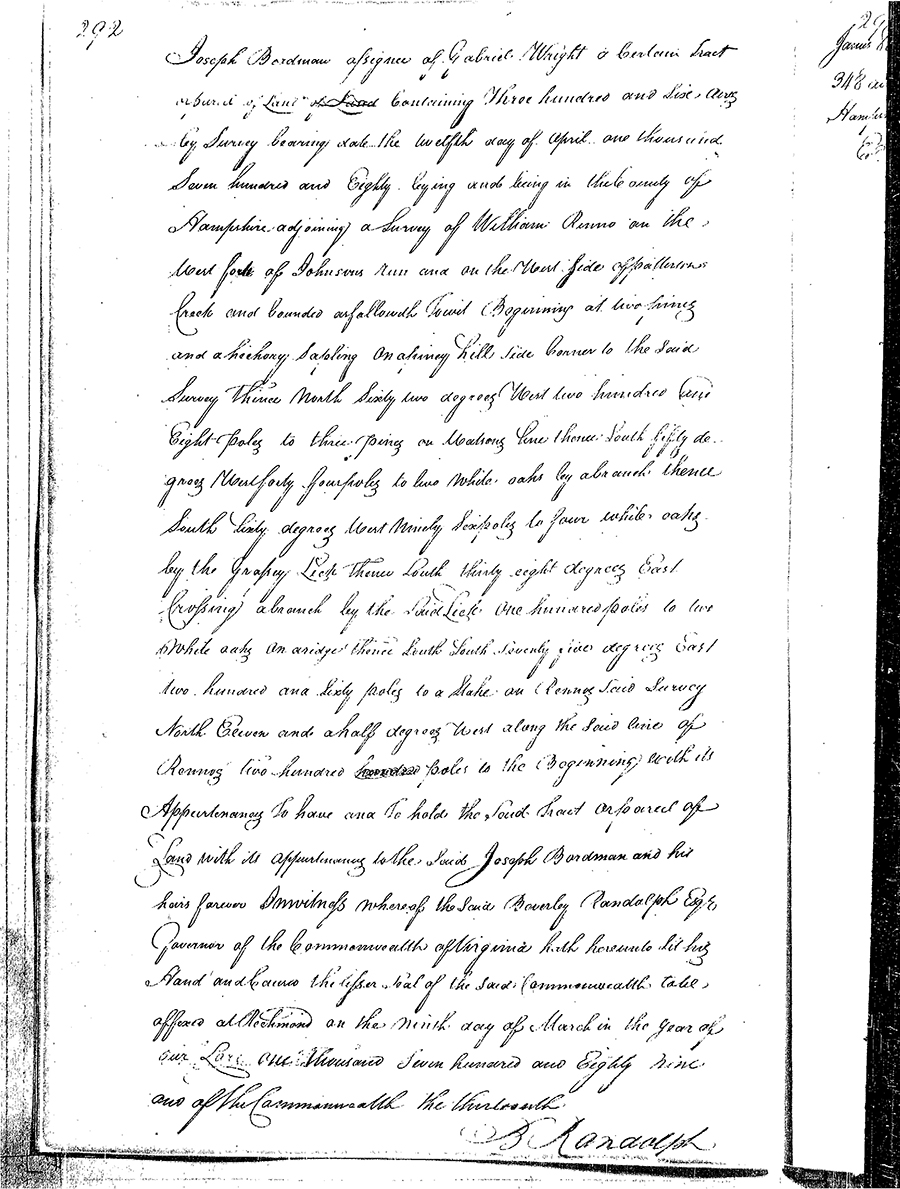 292
Joseph Bordman assignee of Gabriel Wright a Certain Tract
or parcel of Land of Land Containing Three hundred and Six Acres
by Survey bearing date the twelfth day of April one thousand
Seven hundred and Eighty lying and being in the County of
Hampshire adjoining a Survey of William Renno on the
West fork of Johnsons run and on the West Side of pattersons
Creek and bounded as followeth Towit Beginning at two pines
and a hickory Sapling on a piney hill side Corner to the Said
Survey Thence North Sixty two degrees West two hundred and
Eight poles to three pines on line thence South fifty de
grees West forty four poles to two White oaks by a branch thence
South Sixty degrees West Ninety Six poles to four white oaks
by the Grapey Lick Thence South thirty eight degrees East
Crossing a branch by the Said Lick one hundred poles to two
White oaks on a ridge thence South South Seventy five degrees East
two hundred and Sixty poles to a Stake on Rennos Said Survey
North Eleven and a half degrees West along the Said line of
Rennos two hundred hundred poles to the Beginning with its
Appurtenances To have and To hold the Said Tract or parcel of
Land with its appurtenances to the Said Joseph Bordman and his
heirs forever In witness whereof the Said Beverley Randolph Esqr
Governor of the Commonwealth of Virginia hath hereunto Set his
Hand and Caused the lesser Seal of the Said Commonwealth to be
affixed at Richmond on the Ninth day of March in the year of
our Lord one thousand Seven hundred and Eighty nine
and of the Commonwealth the thirteenth
B Randolph
29
James
348
Hamp